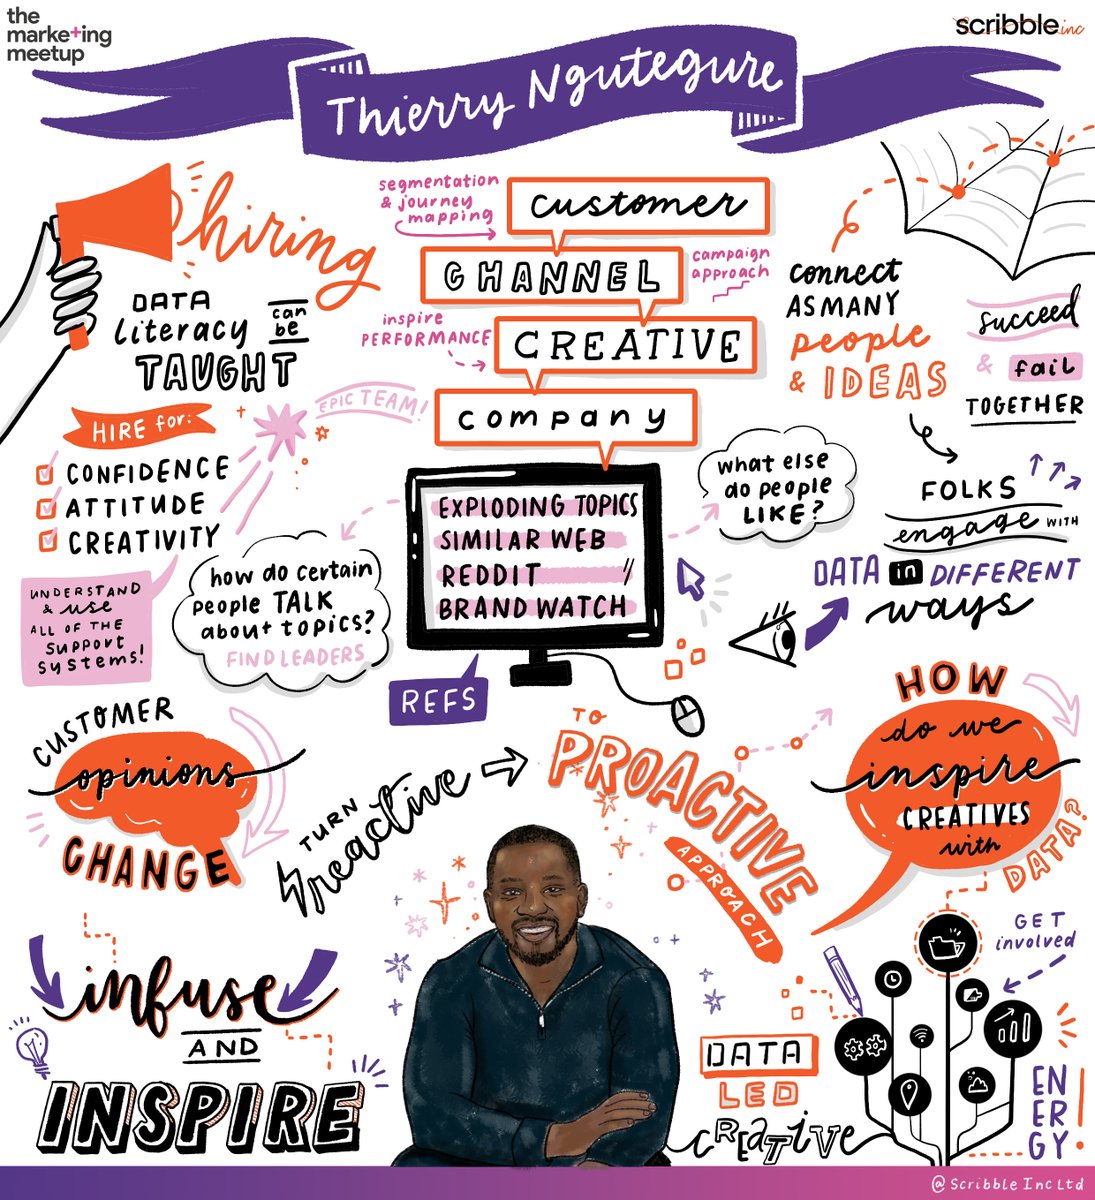 the
marketing
meetup
scribble.inc
Thierry Ngutegure
hiring
DATA
literacy
can
be
TAUGHT
EPIC TEAM!
HIRE for:
CONFIDENCE
ATTITUDE
CREATIVITY
UNDERSTAND
& use
ALL OF THE
SUPPORT
SYSTEMS!
segmentation
& journey
mapping
customer
CHANNEL
campaign
approach
inspire
PERFORMANCE
CREATIVE
company
EXPLODING TOPICS
SIMILAR WEB
REDDIT
BRAND WATCH
REFS
how do certain
people TALK
about topics?
FIND LEADERS
what else
do people
LIKE?
connect
AS MANY
people
& IDEAS
succeed
& fail
TOGETHER
FOLKS
engage WITH
DATA in DIFFERENT
ways
CUSTOMER
opinions
CHANGE
TURN
reactive
TO
PROACTIVE
APPROACH
HOW
do we
inspire
CREATIVES
with
DATA?
infuse
AND
INSPIRE
DATA
LED
CREATIVE
GET
involved
EN
ER
GY!
@ Scribble Inc Ltd